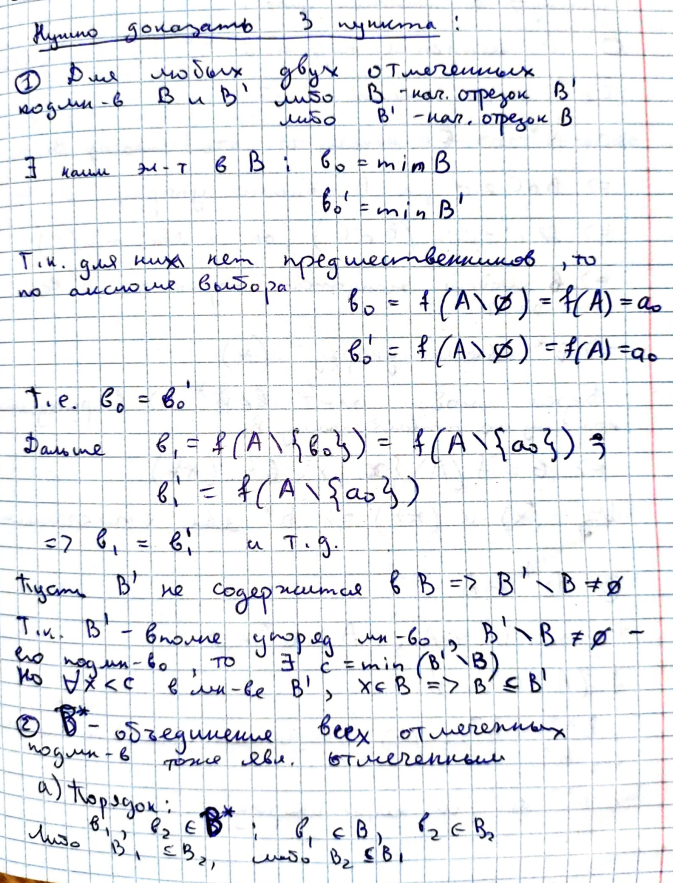 Нужно доказать 3 пункта:
① Для любых двух отмеченных
подмн-в B и B' либо B - нач. отрезок B'
либо B' - нач. отрезок B
∃ наим эл-т в B; b₀ = min B
b₀' = min B'
Т.к. для них нет предшественников, то
по аксиоме выбора b₀ = f(A\∅) = f(A) = a₀
b₀' = f(A\∅) = f(A) = a₀
Т.е. b₀ = b₀'
Дальше b₁ = f(A\{b₀}) = f(A\{a₀});
b₁' = f(A\{a₀})
=> b₁ = b₁' и т.д.
Пусть B' не содержится в B => B'\B ≠ ∅
Т.к. B' - вполне упоряд мн-во, B'\B ≠ ∅ -
его подмн-во, то ∃ c = min (B'\B)
Но ∀x < c в мн-ве B', x ∈ B => B ⊆ B'
② B* - объединение всех отмеченных
подмн-в тоже явл. отмеченным
а) Порядок:
b₁, b₂ ∈ B*; b₁ ∈ B₁ b₂ ∈ B₂
Либо B₁ ⊆ B₂, либо B₂ ⊆ B₁